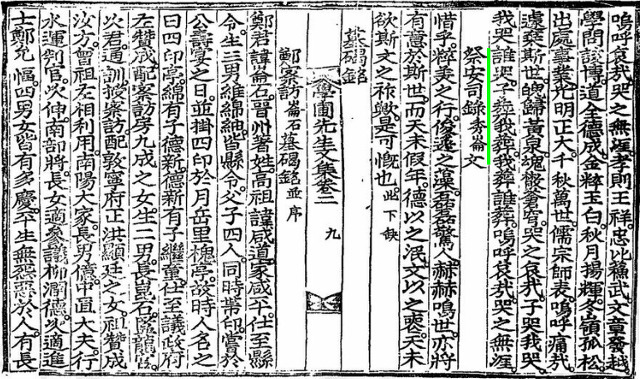 嗚呼哀哉哭之無涯孝則王祥忠比蘇武文章發越
學問該博道全德成金粹玉白秋月揚輝冬嶺孤松
出處事業光明正大千秋萬世儒宗師表嗚呼痛哉
遽棄斯世魄歸黃泉魂撒蒼穹哭之哀哉子哭我哭
我哭誰哭子葬我葬我葬誰葬嗚呼哀哉哭之無涯
祭安司錄秀崙文
惜乎粹美之行俊逸之藻磊磊驚人赫赫鳴世亦將
有意於斯世而天未假年德以之泯文以之喪天未
欲斯文之祚歟是可慨也此下缺
墓碣銘
學圃先生文集卷二 九
鄭察訪崙石墓碣銘並序
鄭君諱崙石晉州著姓高祖諱咸道家咸平仕至縣
令生三男維綿紬皆縣令父子四人同時帶印嘗於
公壽宴之日並掛四印於月岳里槐亭故時人名之
曰四印亭綿有子德新德新有子繼童仕至議政府
左贊成配察訪房九成之女生二男長崑石區龍
以君通訓授察訪配敦寧府正洪顯廷之女祖贊成
汝方曾祖左相利用南陽大家長男億中直大夫行
水運判官次伸南部將長女適參議柳潤德次適進
士鄭允愊四男女皆有多慶平生無怨惡於人有長